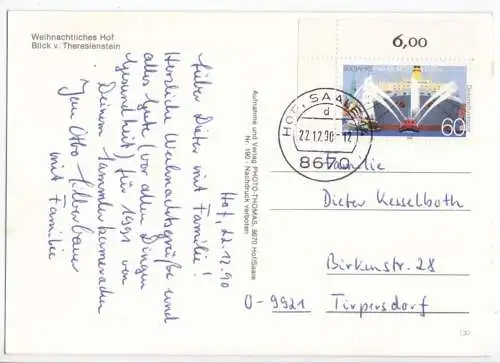 Weihnachtliches Hof
Blick v. Theresienstein
Hof, 22.12.90
Lieber Dieter mit Familie!
Herzliche Weihnachtsgrüße und
alles Gute (vor allen Dingen
Gesundheit) für 1991 von
Deinem Sammlerkameraden
Jean Otto
mit Familie
Aufnahme und Verlag PHOTO-THOMAS, 8670 Hof/Saale
Nr. 190 · Nachdruck verboten
6,00
800 JAHRE
60
HOF, SAALE
d
22.12.90-12
8670
Familie
Dieter Kesselboth
Birkenstr. 28
O-9921 Tirpersdorf